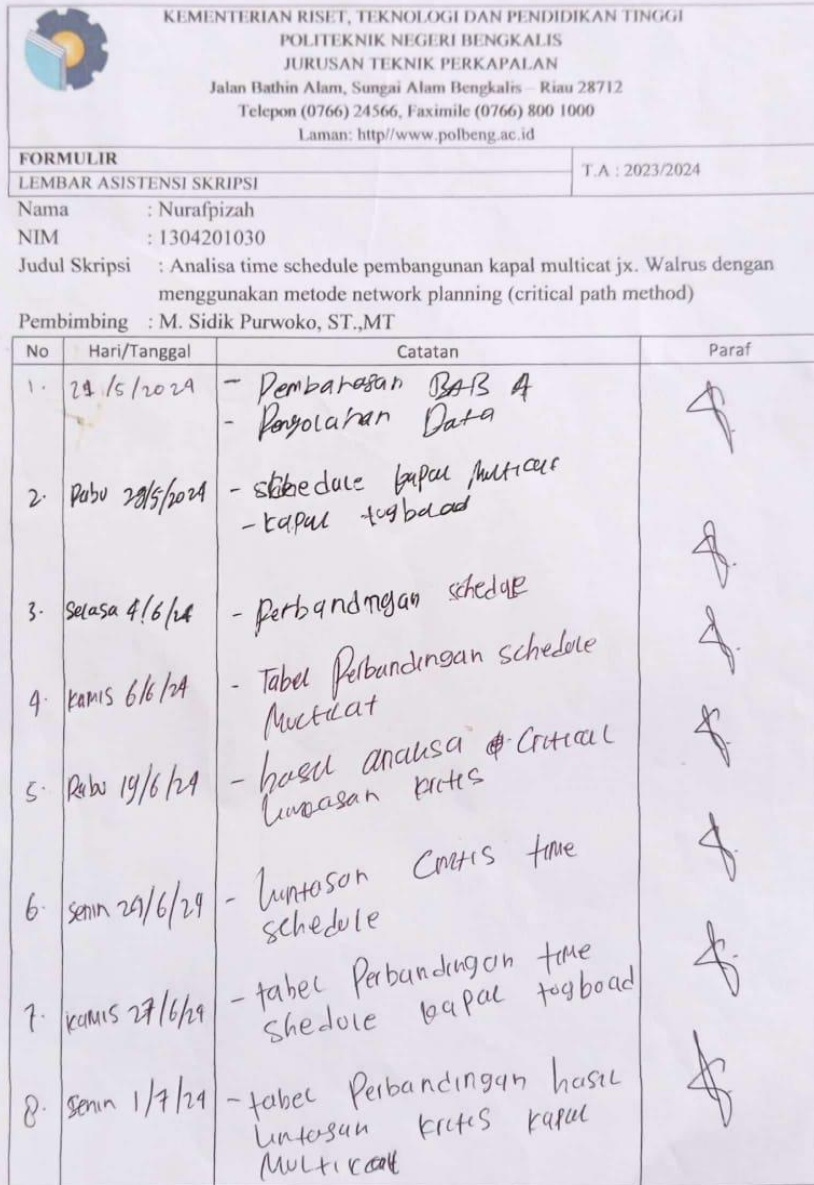 KEMENTERIAN RISET, TEKNOLOGI DAN PENDIDIKAN TINGGI
POLITEKNIK NEGERI BENGKALIS
JURUSAN TEKNIK PERKAPALAN
Jalan Bathin Alam, Sungai Alam Bengkalis – Riau 28712
Telepon (0766) 24566, Faximile (0766) 800 1000
Laman: http//www.polbeng.ac.id
FORMULIR
T.A : 2023/2024
LEMBAR ASISTENSI SKRIPSI
Nama : Nurafpizah
NIM : 1304201030
Judul Skripsi : Analisa time schedule pembangunan kapal multicat jx. Walrus dengan
menggunakan metode network planning (critical path method)
Pembimbing : M. Sidik Purwoko, ST.,MT
No Hari/Tanggal Catatan Paraf
1. /5/2024 - Pembahasan BAB 4
- Pengolahan Data
2. Rabu /5/2024 - schedule kapal Multicat
- kapal togboad
3. Selasa 4/6/24 - Perbandingan
4. Kamis 6/6/24 - Tabel Perbandingan schedule
Multicat
5. Rabu 19/6/24 - hasil analisa Critical
lintasan kritis
6. Senin 24/6/24 - lintasan kritis time
schedule
7. Kamis 27/6/24 - tabel Perbandingan time
shedule kapal togboad
8. Senin 1/7/24 - tabel Perbandingan hasil
lintasan kritis kapal
Multicat